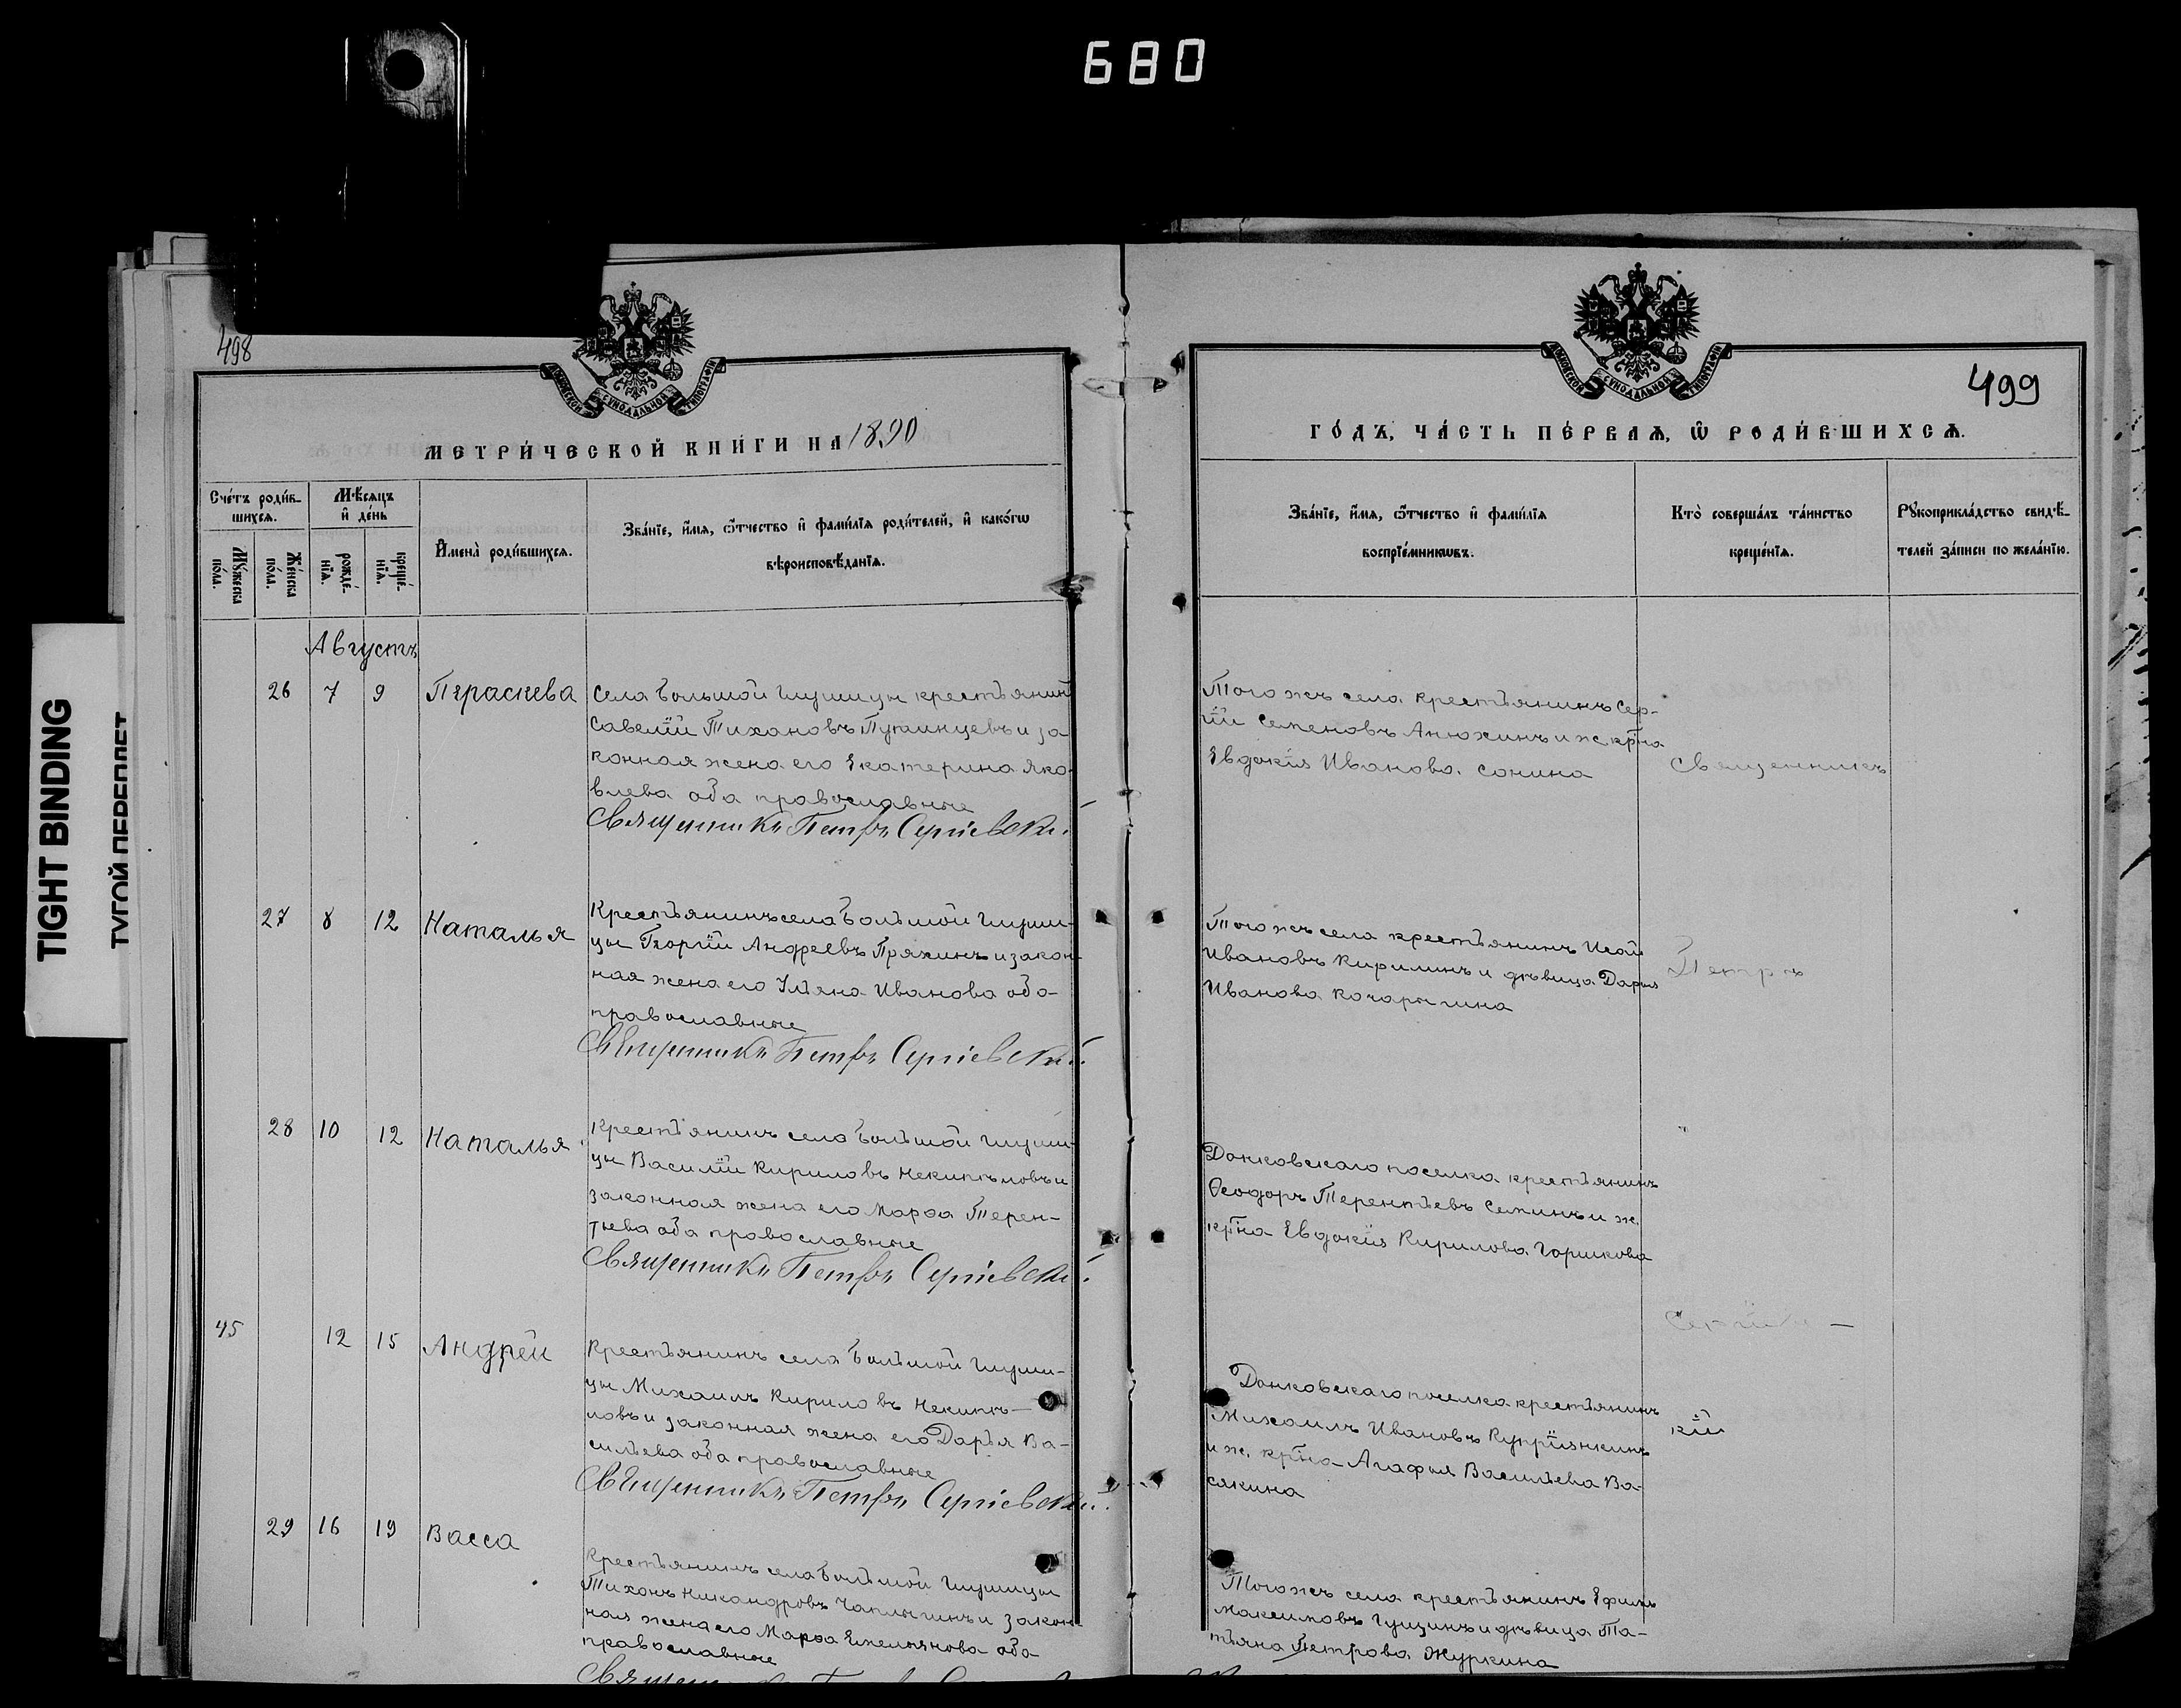 680
TIGHT BINDING
ТУГОЙ ПЕРЕПЛЕТ
498
МОСКОВСКОЙ СѴНОДАЛЬНОЙ ТИПОГРАФІИ
МЕТРИ́ЧЕСКОЙ КНИ́ГИ НА 1890
Сче́тъ роди́в-
шихсѧ.
Мѣ́сѧцъ
и҆ де́нь
Мꙋ́жеска
по́ла.
Же́нска
по́ла.
рожде́-
нїѧ.
креще́-
нїѧ.
И҆мена̀ роди́вшихсѧ.
Зва́нїе, и҆́мѧ, ѻ҆́тчество и҆ фами́лїѧ роди́телей, и҆ како́гѡ
вѣроисповѣ́данїѧ.
Августъ
26 7 9 Параскева
Села Большой Глушицы крестьянинъ
Савелій Тихоновъ и за-
конная жена его Екатерина Яко-
влева оба православные
Священникъ Петръ Сергіевскій.
27 8 12 Наталья
Крестьянинъ села Большой Глуши-
цы Георгій Андреевъ Пряхинъ и закон-
ная жена его Ульяна Иванова оба
православные
Священникъ Петръ Сергіевскій.
28 10 12 Наталья
Крестьянинъ села Большой Глуши-
цы Василій Кириловъ Некипѣловъ и
законная жена его Марѳа Терен-
тьева оба православные
Священникъ Петръ Сергіевскій.
45 12 15 Андрей
Крестьянинъ села Большой Глуши-
цы Михаилъ Кириловъ Некипѣ-
ловъ и законная жена его Дарья Ва-
сильева оба православные
Священникъ Петръ Сергіевскій.
29 16 19 Васса
Крестьянинъ села Большой Глушицы
Тихонъ Никандровъ Чаплыгинъ и закон-
ная жена его Марѳа Емельянова оба
православные
499
МОСКОВСКОЙ СѴНОДАЛЬНОЙ ТИПОГРАФІИ
ГО́ДЪ, ЧА́СТЬ ПЕ́РВАѦ, Ѡ҆ РОДИ́ВШИХСѦ.
Зва́нїе, и҆́мѧ, ѻ҆́тчество и҆ фами́лїѧ
воспрїе́мникѡвъ.
Кто̀ соверша́лъ та́инство
креще́нїѧ.
Рꙋкоприкла́дство свидѣ́-
телей за́писи по жела́нїю.
Того жъ села крестьянинъ Сер-
гій Семеновъ Анюхинъ и ж. кр-на
Евдокія Иванова Сонина
Священникъ
Того жъ села крестьянинъ Исай
Ивановъ Кирилинъ и дѣвица Дарья
Иванова
Петръ
Донковскаго поселка крестьянинъ
Ѳеодоръ Терентьевъ Семинъ и ж.
кр-на Евдокія Кирилова Горшкова
Сергіев-
Донковскаго поселка крестьянинъ
Михаилъ Ивановъ Купріянкинъ
и ж. кр-на Агафья Васильева Ва-
сякина
скій
Того жъ села крестьянинъ Ефимъ
Максимовъ Гущинъ и дѣвица Та-
тьяна Петрова Журкина